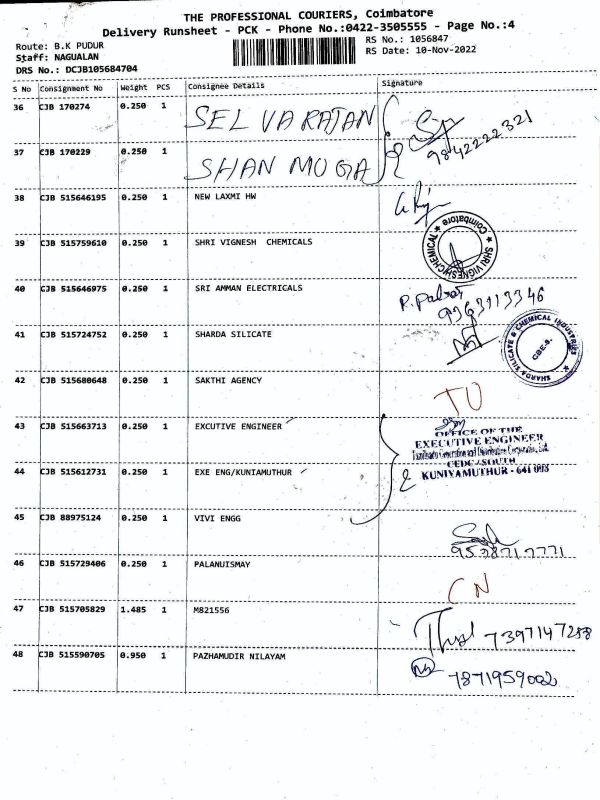 THE PROFESSIONAL COURIERS, Coimbatore
Delivery Runsheet - PCK - Phone No.:0422-3505555 - Page No.:4
Route: B.K PUDUR
RS No.: 1056847
Staff: NAGUALAN
RS Date: 10-Nov-2022
DRS No.: DCJB105684704
S No Consignment No Weight PCS Consignee Details Signature
36 CJB 170274 0.250 1 SELVARAJAN
9842222321
37 CJB 170229 0.250 1 SHANMUGA
38 CJB 515646195 0.250 1 NEW LAXMI HW
39 CJB 515759610 0.250 1 SHRI VIGNESH CHEMICALS
★ SHRI VIGNESH CHEMICAL ★ Coimbatore
40 CJB 515646975 0.250 1 SRI AMMAN ELECTRICALS
9363113346
41 CJB 515724752 0.250 1 SHARDA SILICATE
SHARDA SILICATE & CHEMICAL INDUSTRIES ★
CBE-8.
42 CJB 515680648 0.250 1 SAKTHI AGENCY
43 CJB 515663713 0.250 1 EXCUTIVE ENGINEER
OFFICE OF THE
EXECUTIVE ENGINEER
Tamilnadu Generation and Distribution Corporation Ltd.
CEDC / SOUTH
KUNIYAMUTHUR - 641 008
44 CJB 515612731 0.250 1 EXE ENG/KUNIAMUTHUR
45 CJB 88975124 0.250 1 VIVI ENGG
46 CJB 515729406 0.250 1 PALANUISMAY
CN
47 CJB 515705829 1.485 1 M821556
7397147288
48 CJB 515590705 0.950 1 PAZHAMUDIR NILAYAM
7871959002